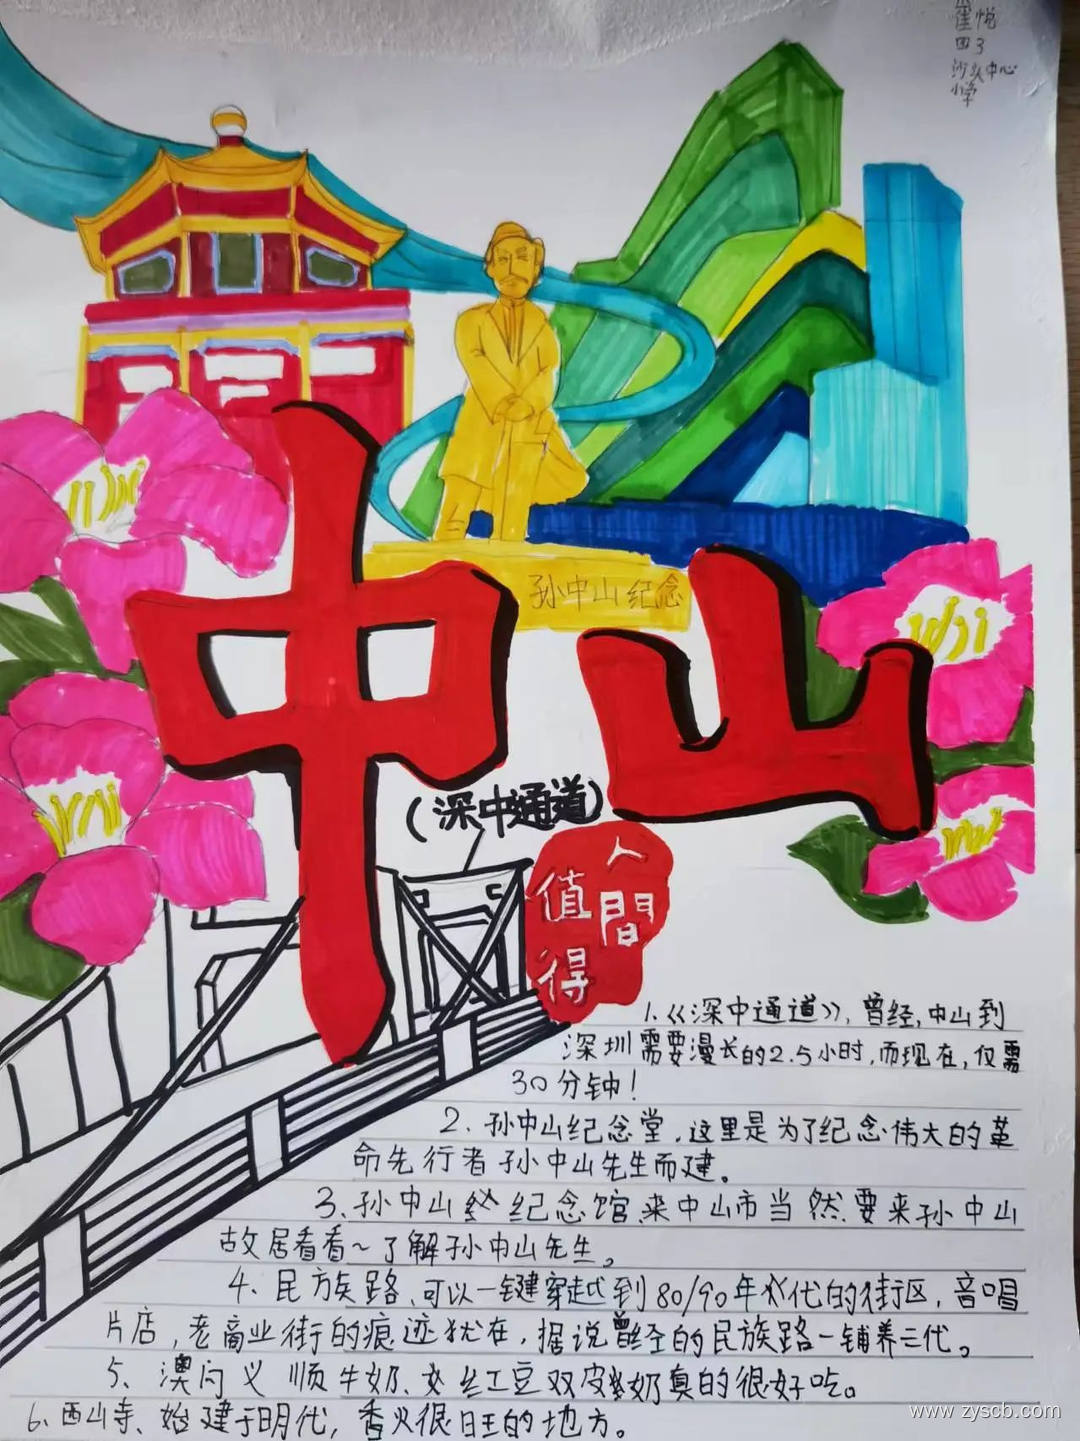 悦
四3
沙头中心
小学
孙中山纪念
中山
(深中通道)
人間
值得
1.《深中通道》,曾经,中山到
深圳需要漫长的2.5小时,而现在,仅需
30分钟!
2、孙中山纪念堂,这里是为了纪念伟大的革
命先行者孙中山先生而建。
3、孙中山纪念馆、来中山市当然要来孙中山
故居看看~了解孙中山先生。
4、民族路、可以一键穿越到80/90年代的街区,音唱
片店,老商业街的痕迹犹在,据说曾经的民族路一铺养三代。
5、澳门义顺牛奶、红豆双皮奶真的很好吃。
6、西山寺、始建于明代,香火很旺的地方。
www.zyscb.com